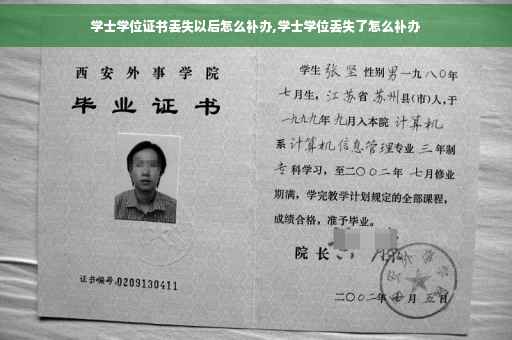 学士学位证书丢失以后怎么补办,学士学位丢失了怎么补办
西安外事学院
毕业证书
证书编号:0209130411
学生张坚性别男一九八〇年
七月生,江苏省苏州县(市)人,于
一九九九年九月入本院计算机
系计算机信息管理专业三年制
专科学习,至二〇〇二年七月修业
期满,学完教学计划规定的全部课程,
成绩合格,准予毕业。
院长
二〇〇二年七月五日